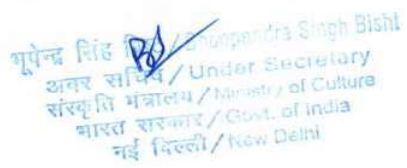 भूपेन्द्र सिंह / Bhoopendra Singh Bisht
अवर सचिव / Under Secretary
संस्कृति मंत्रालय / Ministry of Culture
भारत सरकार / Govt. of India
नई दिल्ली / New Delhi